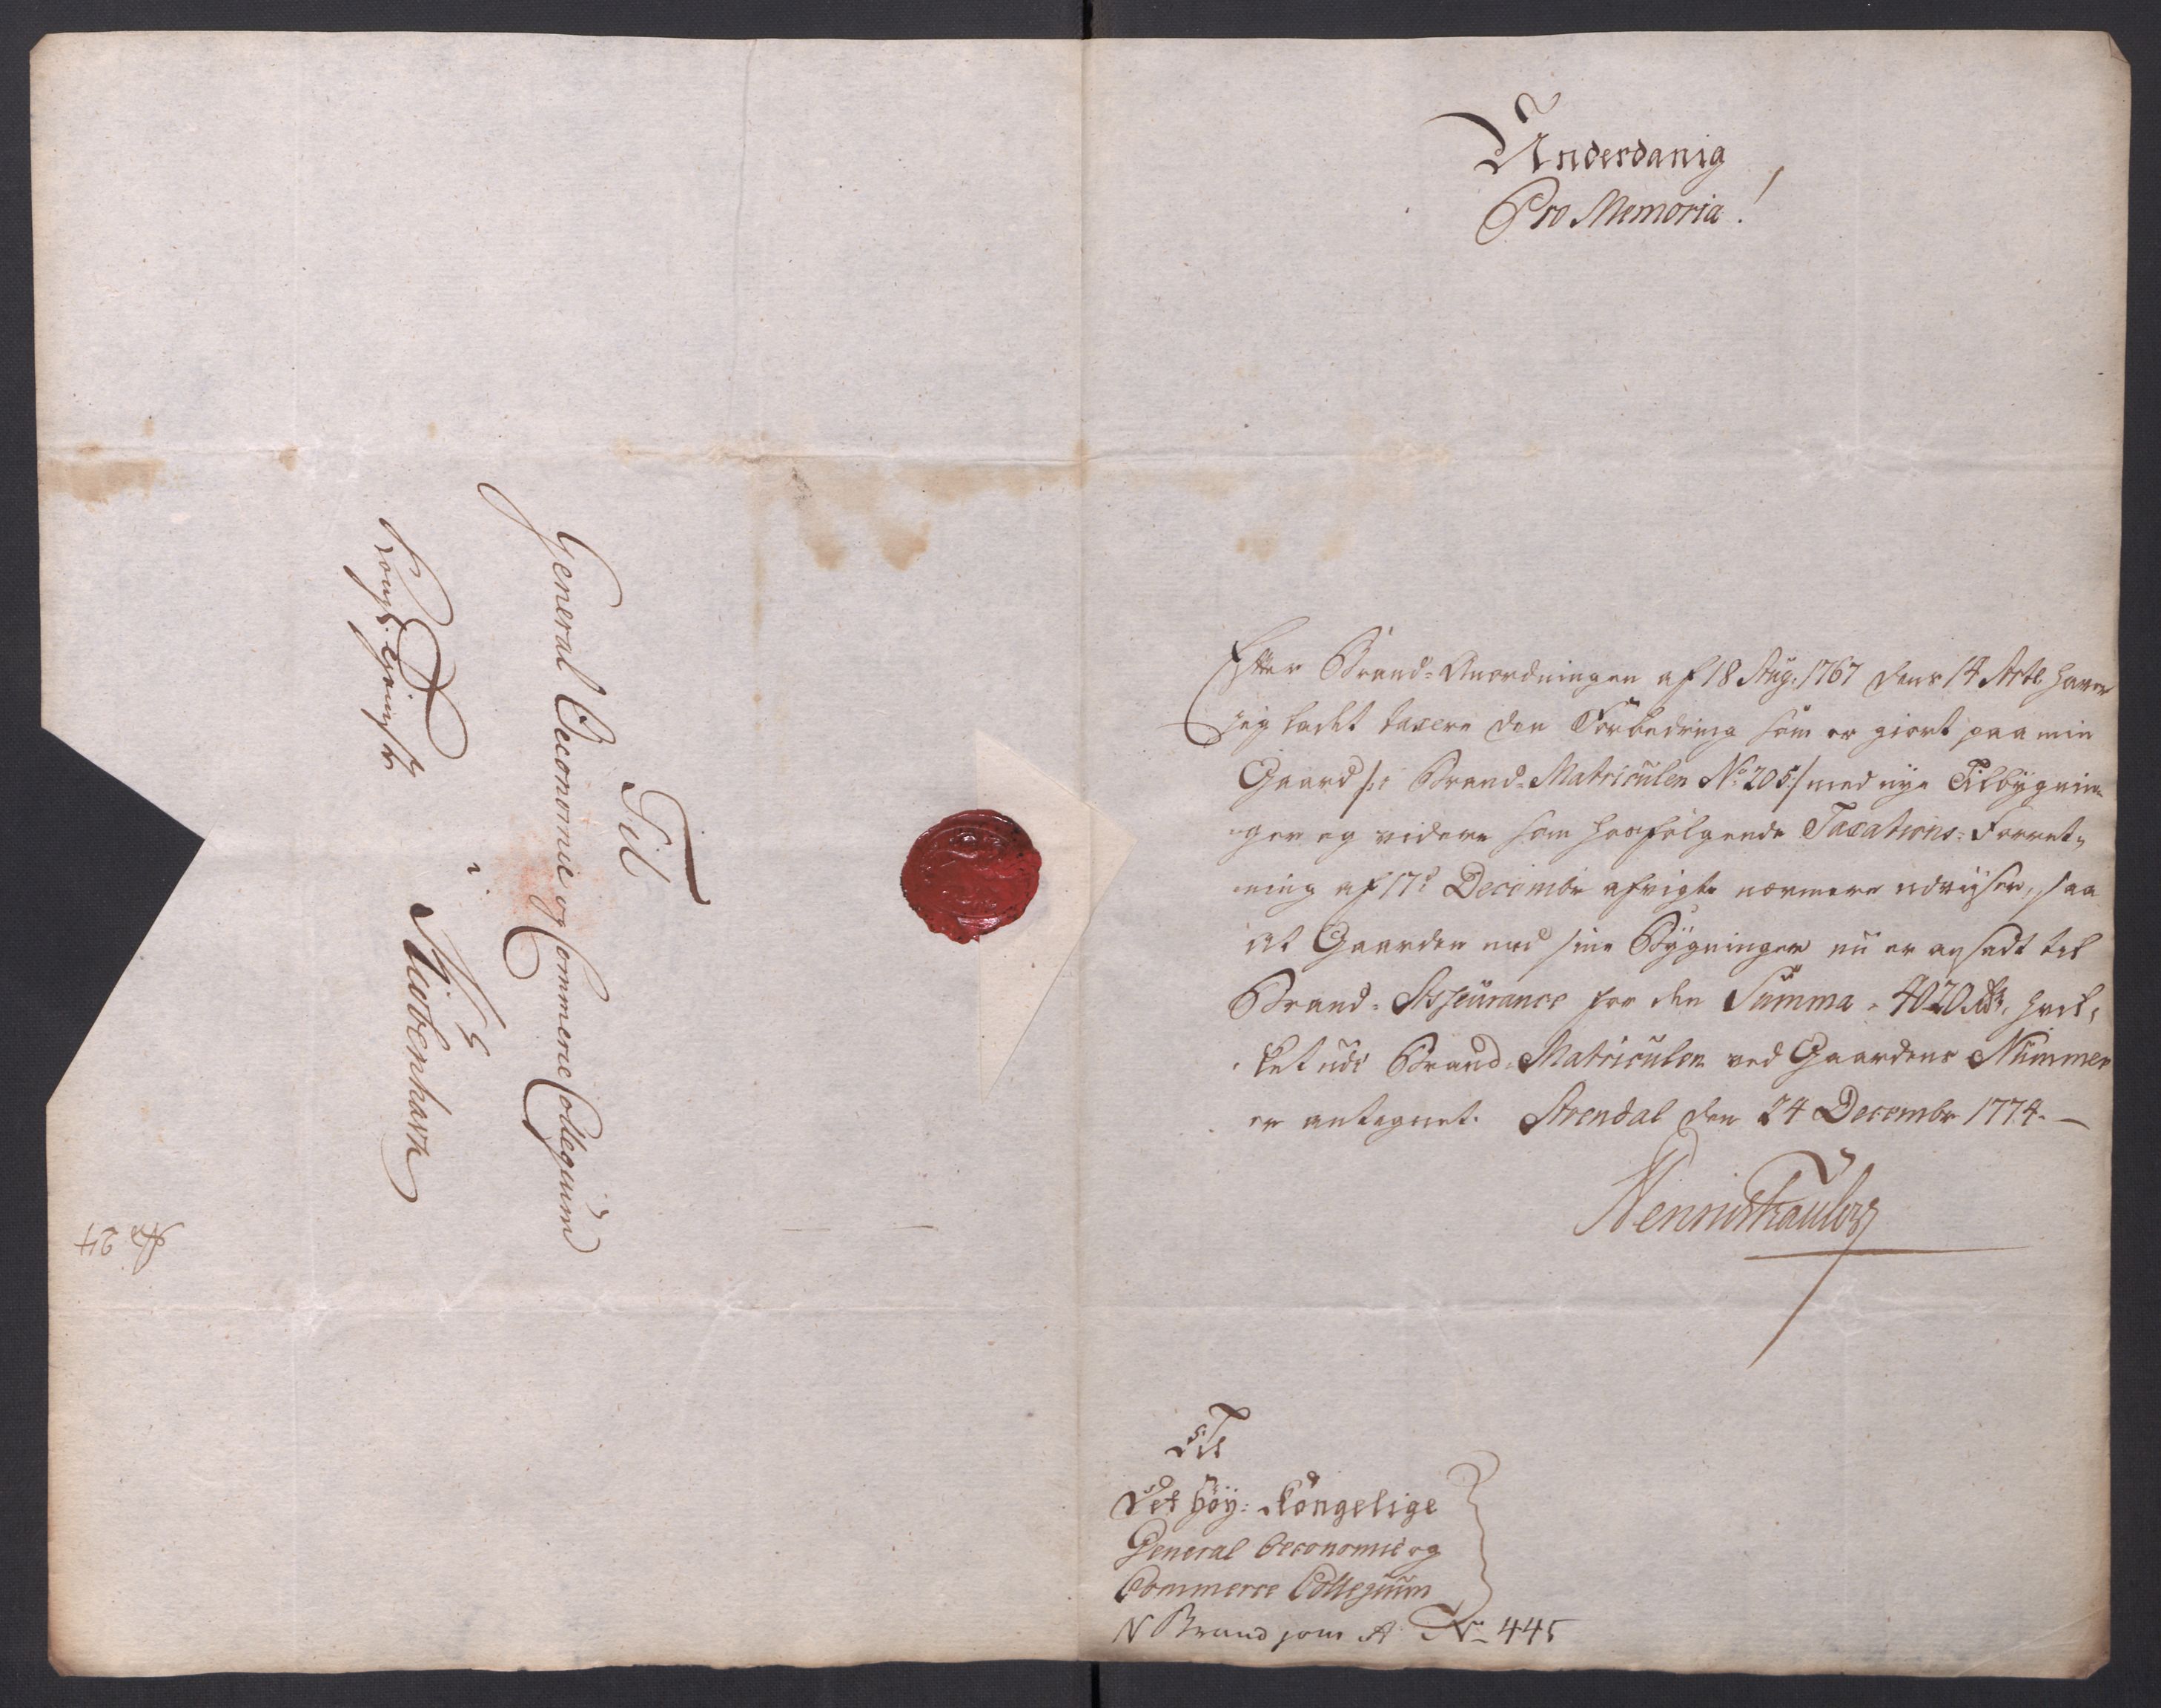 Til
General Oeconomie og Commerce Collegium
i
Kiøbenhavn
Kongl. Tieniste
No 24
Underdanig
Pro Memoria!
Efter Brand-Anordningen af 18 Aug: 1767 dens 14 Artl. haver
jeg ladet taxere den Forbedring som er giort paa min
Gaard /: i Brand-Matriculen No 205 :/ med nye Tilbygnin-
ger og videre som hosfølgende Taxations-Forret-
ning af 17de Decembr afvigte nærmere udviiser, saa
at Gaarden med sine Bygninger nu er ansadt til
Brand-Asseurance for den Summa - 4020 Rdr, hvil-
ket udi Brand-Matriculen ved Gaardens Nummer
er antegnet. Arendal den 24 Decembr 1774.
Til
Det Høy-Kongelige
General Oeconomie og
Commerce Collegium
N Brand jour A No 445